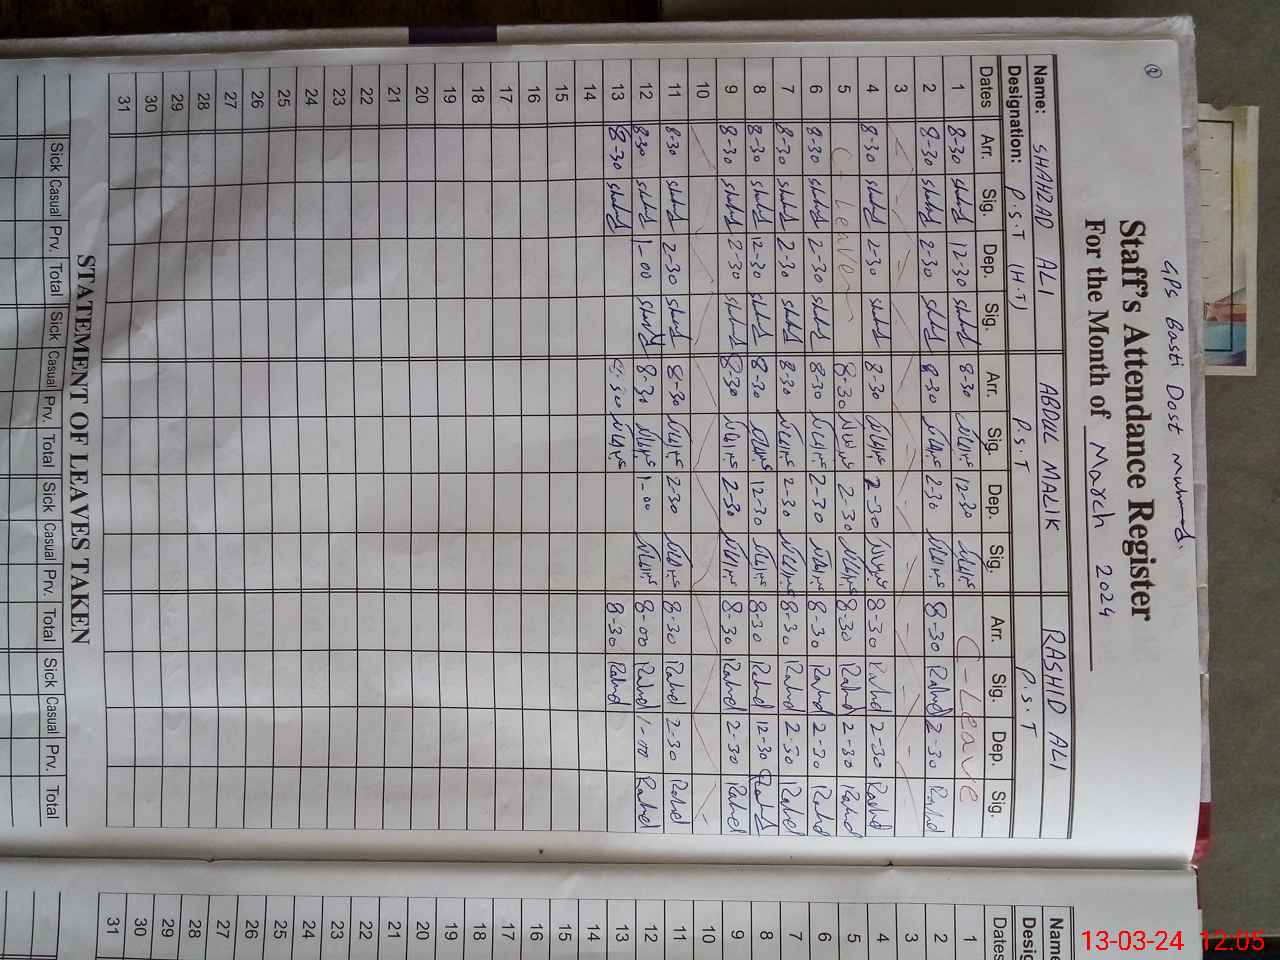 GPS Basti Dost Muhmmad.
Staff's Attendance Register
For the Month of March 2024
Name: SHAHZAD ALI ABDUL MALIK RASHID ALI
Designation: P.S.T (H.T) P.S.T P.S.T
Dates Arr. Sig. Dep. Sig. Arr. Sig. Dep. Sig. Arr. Sig. Dep. Sig.
1 8-30 12-30 8-30 12-30 C-Leave
2 8-30 2-30 8-30 2-30 8-30 Rashid 2-30 Rashid
3
4 8-30 2-30 8-30 2-30 8-30 Rashid 2-30 Rashid
5 C-Leave 8-30 2-30 8-30 Rashid 2-30 Rashid
6 8-30 2-30 8-30 2-30 8-30 Rashid 2-30 Rashid
7 8-30 2-30 8-30 2-30 8-30 Rashid 2-30 Rashid
8 8-30 12-30 8-30 12-30 8-30 Rashid 12-30 Rashid
9 8-30 2-30 8-30 2-30 8-30 Rashid 2-30 Rashid
10
11 8-30 2-30 8-30 2-30 8-30 Rashid 2-30 Rashid
12 8-30 1-00 8-30 1-00 8-00 Rashid 1-00 Rashid
13 8-30 8-30 8-30 Rashid
14
15
16
17
18
19
20
21
22
23
24
25
26
27
28
29
30
31
STATEMENT OF LEAVES TAKEN
Sick Casual Prv. Total Sick Casual Prv. Total Sick Casual Prv. Total Sick Casual Prv. Total
Name
Desig
Dates
1
2
3
4
5
6
7
8
9
10
11
12
13
14
15
16
17
18
19
20
21
22
23
24
25
26
27
28
29
30
31
13-03-24 12:05